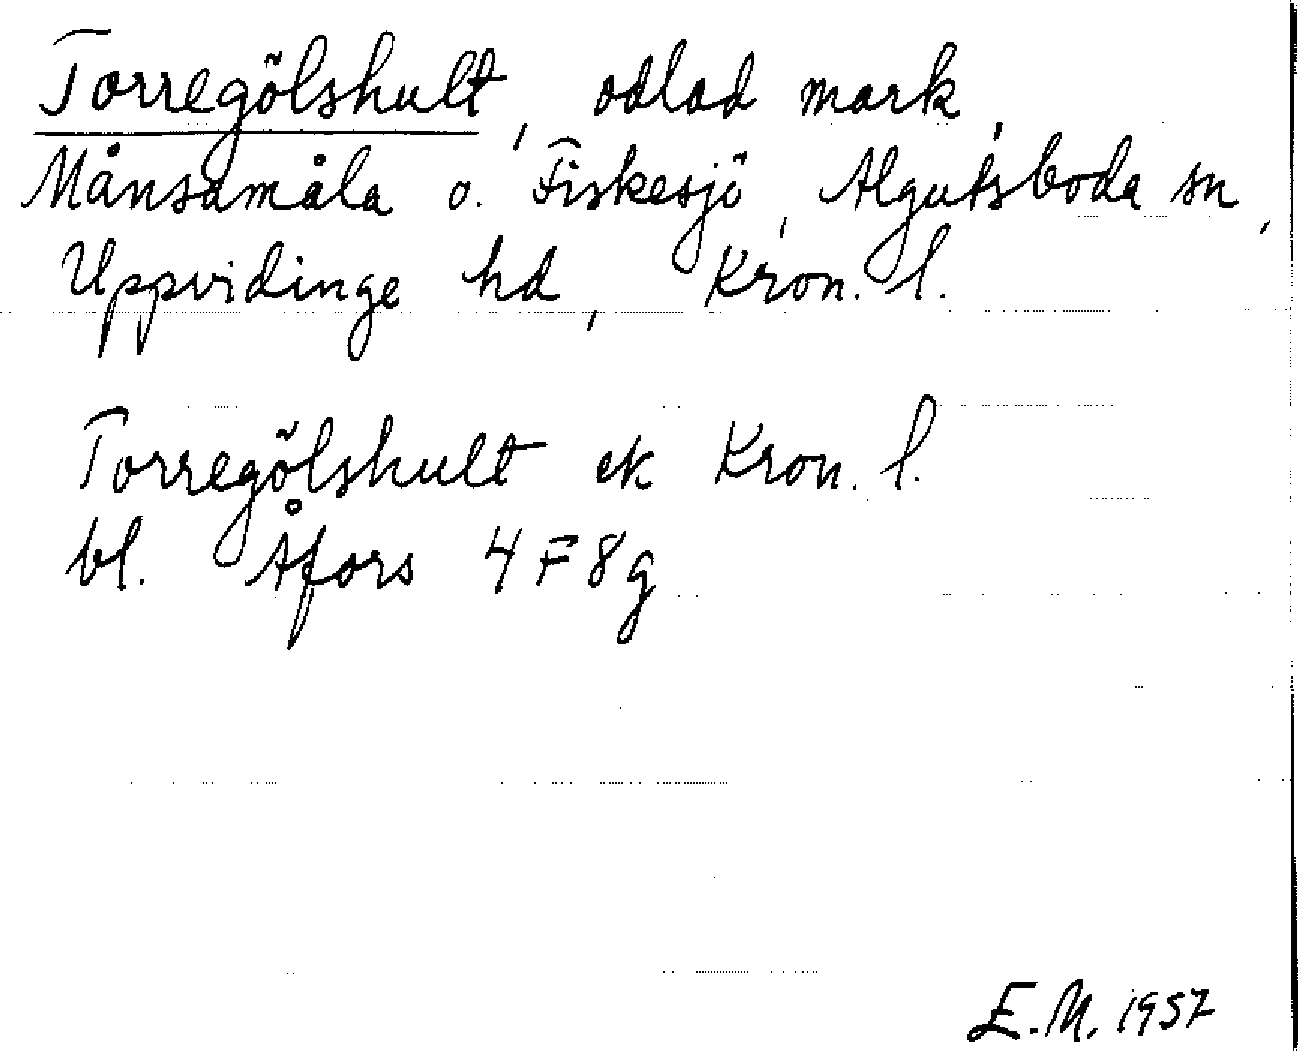 Torregölshult, odlad mark,
Månsamåla o. Fiskesjö, Algutsboda sn,
Uppvidinge hd, Kron. l.
Torregölshult ek Kron. l.
bl. Åfors 4F8g
E.M. 1957